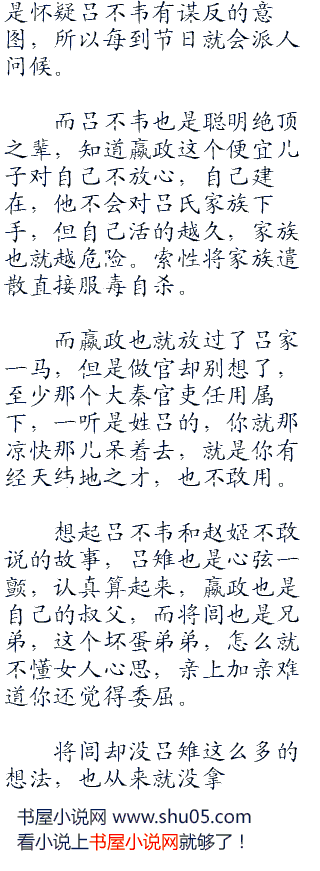 是怀疑吕不韦有谋反的意
图，所以每到节日就会派人
问候。
而吕不韦也是聪明绝顶
之辈，知道嬴政这个便宜儿
子对自己不放心，自己建
在，他不会对吕氏家族下
手，但自己活的越久，家族
也就越危险。索性将家族遣
散直接服毒自杀。
而嬴政也就放过了吕家
一马，但是做官却别想了，
至少那个大秦官吏任用属
下，一听是姓吕的，你就那
凉快那儿呆着去，就是你有
经天纬地之才，也不敢用。
想起吕不韦和赵姬不敢
说的故事，吕雉也是心弦一
颤，认真算起来，嬴政也是
自己的叔父，而将闾也是兄
弟，这个坏蛋弟弟，怎么就
不懂女人心思，亲上加亲难
道你还觉得委屈。
将闾却没吕雉这么多的
想法，也从来就没拿
书屋小说网 www.shu05.com
看小说上书屋小说网就够了！